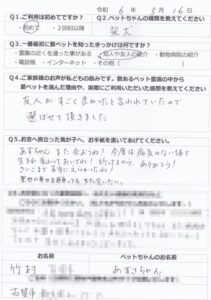 令和 6年 5月 16日
Q1.ご利用は初めてですか?
Q2.ペットちゃんの種類を教えてください
初めて ・ 2回目以降
柴犬
Q3.一番最初に愛ペットを知ったきっかけは何ですか?
・霊園の近くを通った事がある ・知人や友人の紹介 ・動物病院の紹介
・電話帳 ・インターネット ・その他( )
Q4.ご家族様のお声が私どもの励みです。数あるペット霊園の中から
愛ペットを選んだ理由や、実際にご利用いただいた感想を教えてください
友人が すごく良かったと言われていたので
選ばせて頂きました
Q5.お空へ旅立った我が子へ、お手紙を書いてあげてください。
あずちゃん また会おうね! 今度は病気のない体で
生まれ変わっておいでね! ありがとう!
さいごまで
お名前
ペットちゃんのお名前
竹村
あずさちゃん
古賀市